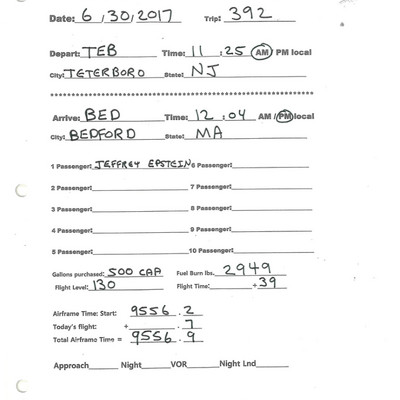 Date: 6/30/2017 Trip: 392
Depart: TEB Time: 11:25 AM PM local
City: TETERBORO State: NJ
****************************************************
Arrive: BED Time: 12:04 AM /PM local
City: BEDFORD State: MA
1 Passenger: JEFFREY EPSTEIN 6 Passenger:
2 Passenger: 7 Passenger:
3 Passenger: 8 Passenger:
4 Passenger: 9 Passenger:
5 Passenger: 10 Passenger:
Gallons purchased: 500 CAP Fuel Burn lbs. 2949
Flight Level: 130 Flight Time: +39
Airframe Time: Start: 9556.2
Today's flight: + .7
Total Airframe Time = 9556.9
Approach Night VOR Night Lnd